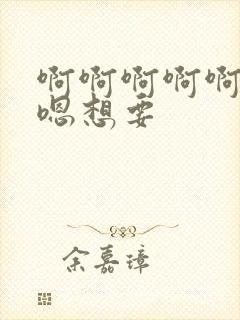 啊啊啊啊啊
嗯想要
余嘉璋